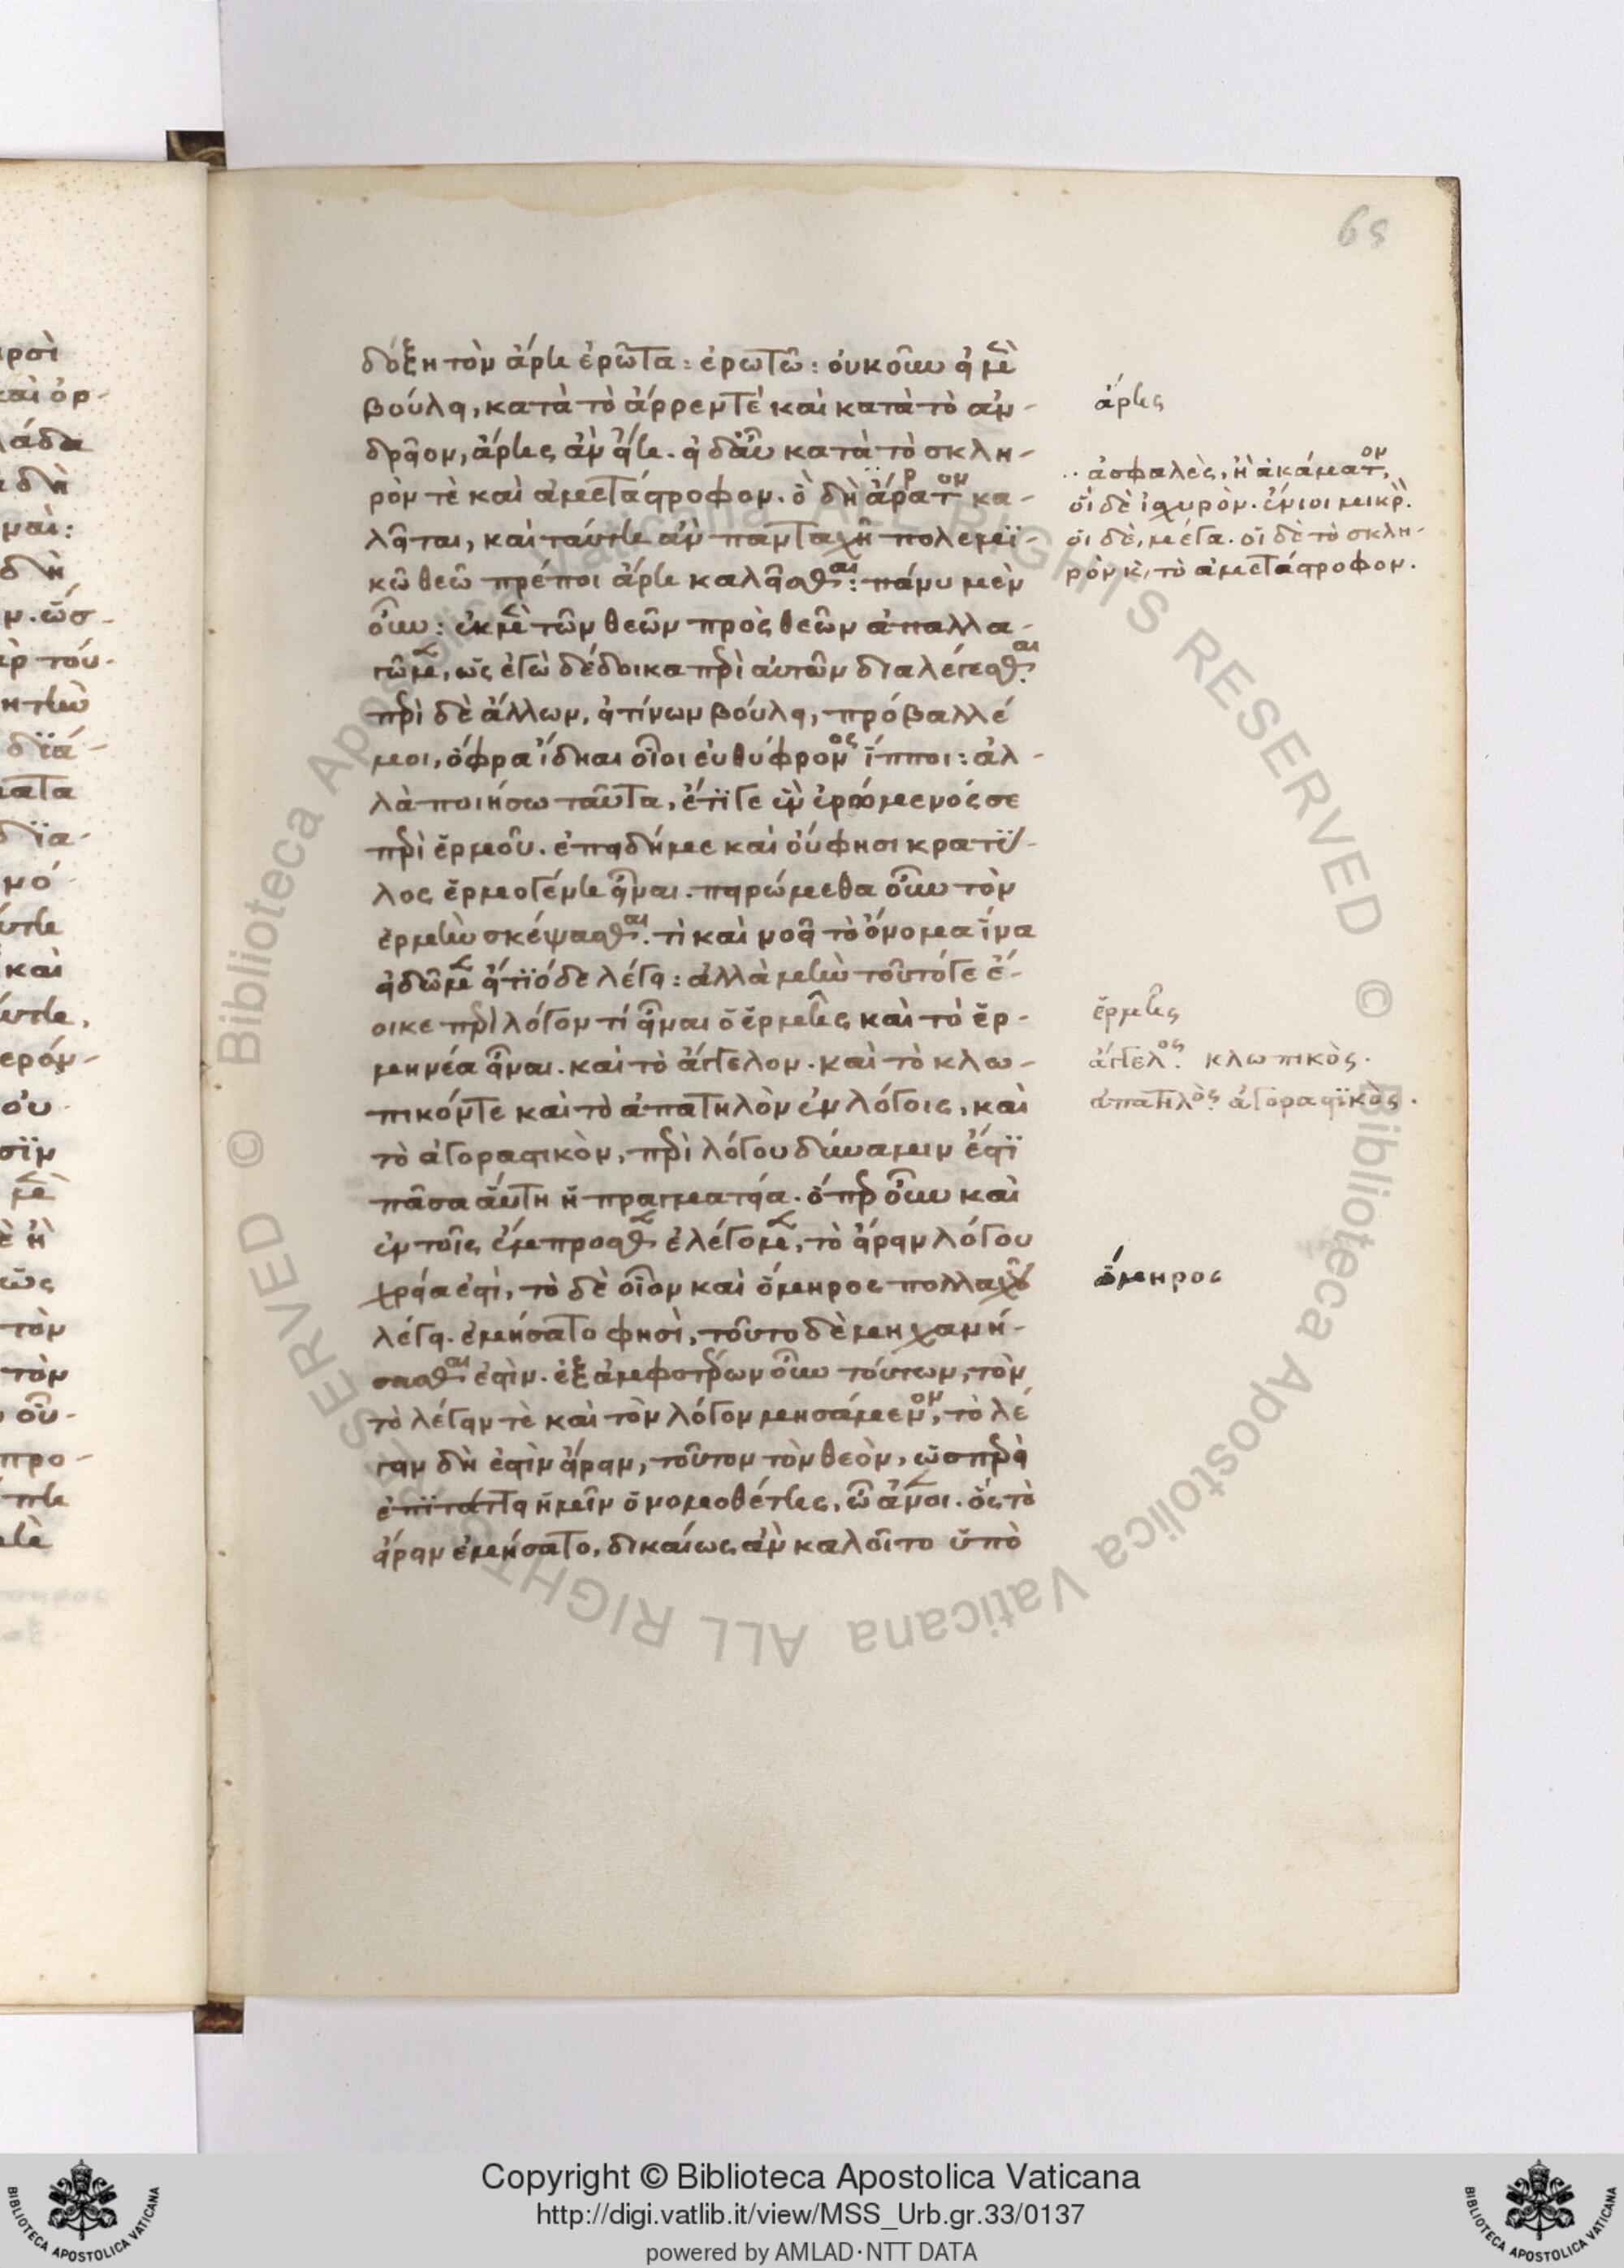 65
δόξῃ τὸν ἄρη ἐρώτα: ἐρωτῶ: οὐκοῦν εἰ μὲν
βούλει, κατὰ τὸ ἄρρεν τὲ καὶ κατὰ τὸ ἀν-
δρεῖον, ἄρης ἂν εἴη. εἰ δ' αὖ κατὰ τὸ σκλη-
ρόν τὲ καὶ ἀμετάστροφον. ὃ δὴ ἄρρατον κα-
λεῖται, καὶ ταύτη ἂν πανταχῆ πολεμι-
κῶ θεῶ πρέποι ἄρη καλεῖσθαι: πάνυ μὲν
οὖν: ἐκ μὲν τῶν θεῶν πρὸς θεῶν ἀπαλλα-
γῶμεν, ὡς ἐγὼ δέδοικα περὶ αὐτῶν διαλέγεσθαι.
περὶ δὲ ἄλλων, ὧτίνων βούλει, πρόβαλλέ
μοι, ὄφρα ἴδηαι οἷοι εὐθύφρονος ἵπποι: ἀλ-
λὰ ποιήσω ταῦτα, ἔτι γε ἓν ἐρόμενός σε
περὶ ἑρμοῦ. ἐπειδή με καὶ οὔ φησι κρατύ-
λος ἑρμογένη εἶναι. πειρώμεθα οὖν τὸν
ἑρμῆν σκέψασθαι. τί καὶ νοεῖ τὸ ὄνομα ἵνα
εἰδῶμεν εἴ τι ὅδε λέγει: ἀλλὰ μὴν τοῦτό γε ἔ-
οικε περὶ λόγον τί εἶναι ὁ ἑρμῆς καὶ τὸ ἑρ-
μηνέα εἶναι. καὶ τὸ ἄγγελον. καὶ τὸ κλω-
πικόν τε καὶ τὸ ἀπατηλὸν ἐν λόγοις, καὶ
τὸ ἀγοραστικὸν, περὶ λόγου δύναμιν ἐστὶ
πᾶσα αὕτη ἡ πραγματεία. ὅπερ οὖν καὶ
ἐν τοῖς ἔμπροσθεν ἐλέγομεν, τὸ εἴρειν λόγου
χρεία ἐστὶ, τὸ δὲ οἷον καὶ ὅμηρος πολλαχοῦ
λέγει. ἐμήσατο φησὶ, τοῦτο δὲ μηχανή-
σασθαι ἐστὶν. ἐξ ἀμφοτέρων οὖν τούτων, τὸν
τὸ λέγειν τὲ καὶ τὸν λόγον μησάμενον, τὸ λέ
γειν δὴ ἐστὶν εἴρειν, τοῦτον τὸν θεὸν, ὡσπερεὶ
ἐπιτάττει ἡμῖν ὁ νομοθέτης, ὦ ἄνοι. ὃς τὸ
εἴρειν ἐμήσατο, δικαίως ἂν καλοῖτο ὑπὸ
ἄρης
ἀσφαλὲς, ἢ ἀκάματον,
οἱ δὲ ἰσχυρὸν. ἔνιοι μικρὸν.
οἱ δὲ, μέγα. οἱ δὲ τὸ σκλη-
ρὸν καὶ, τὸ ἀμετάστροφον.
ἑρμῆς
ἄγγελος. κλωπικὸς.
ἀπατηλὸς. ἀγοραστικὸς.
ὅμηρος
Copyright © Biblioteca Apostolica Vaticana
http://digi.vatlib.it/view/MSS_Urb.gr.33/0137
powered by AMLAD·NTT DATA